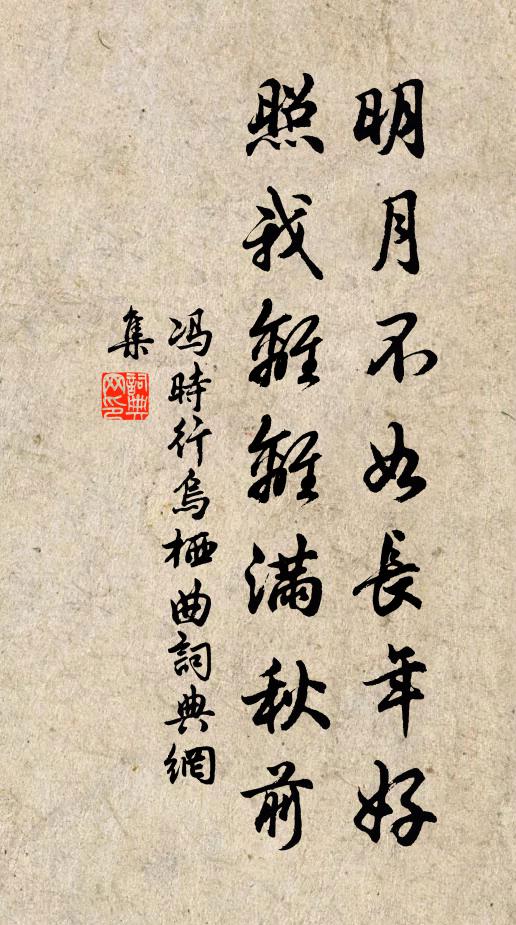 明月不如長年好
照我離離滿秋前
馮時行烏栖曲詞典網
集
詞典网印